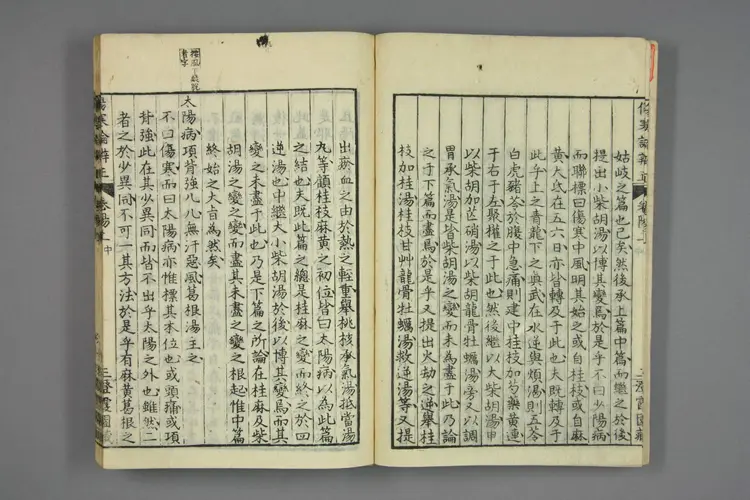 姑岐之篇也已矣然後承上篇中篇而繼之於後
提出小柴胡湯以博其變焉於是乎不曰少陽病
而聯標曰傷寒中風明其始之或自桂枝或自麻
黃大氐在五六日亦皆轉及于此也夫既轉及于
此乎上之青龍下之與武在水逆與煩湯則五苓
白虎豬苓於腹中急痛則建中桂枝加芍藥黃連
于右于左聚權之于此也然後繼以大柴胡湯申
以柴胡加芒硝湯以柴胡龍骨牡蠣湯旁又以調
胃承氣湯是皆柴胡湯之變而未為盡于此乃論
之于下篇而盡焉於是乎又提出火劫之逆舉桂
枝加桂湯桂枝甘草龍骨牡蠣湯救逆湯等又提
出瘀血之由於熱之輕重舉桃核承氣湯抵當湯
丸等顧桂枝麻黃之初位皆曰太陽病以為此篇
之結也夫既此篇之總是桂麻之變而終之於四
逆湯也中繼大小柴胡湯於後以博其變焉而其
變之未盡于此也乃是下篇之所論在桂麻及柴
胡湯之變之變而盡其未盡之變之根起惟中篇
終始之大旨為然矣
太陽病項背強几几無汗惡風葛根湯主之
不曰傷寒而曰太陽病亦惟標其本位也或頭痛或項
背強此在其少異同而皆不出乎太陽之外也雖然二
者之於少異同不可一其方法於是乎有麻黃葛根之
傷寒論辨正